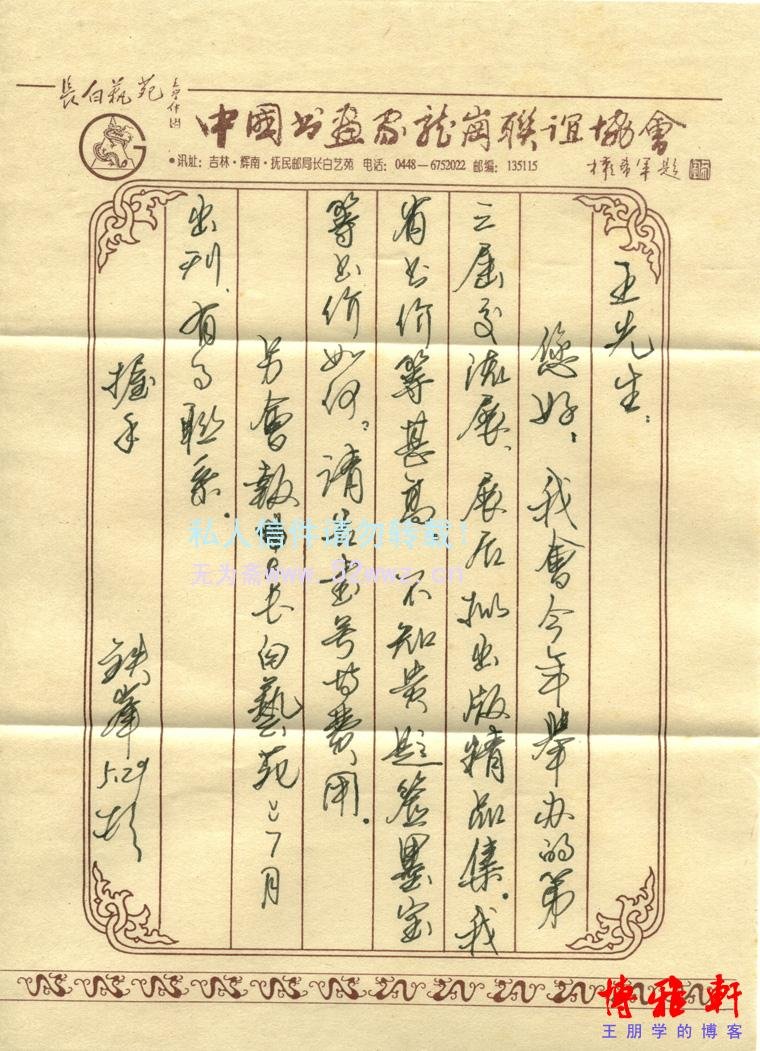 長白藝苑
中國书畫家龍崗聯誼協會
•讯址：吉林·辉南·抚民邮局长白艺苑 电话：0448—6752022 邮编：135115
權希軍題
王先生：
您好，我會今年舉办的第
三届交流展、展后拟出版精品集。我
省书价等甚高，不知贵题签墨宝
等书价如何？请
费用。
另會報《长白藝苑》7月
出刊、有事联系。
握手
铁峯
5.29
私人信件请勿转载！
无为斋www.52wwz.cn
博雅軒
王朋学的博客